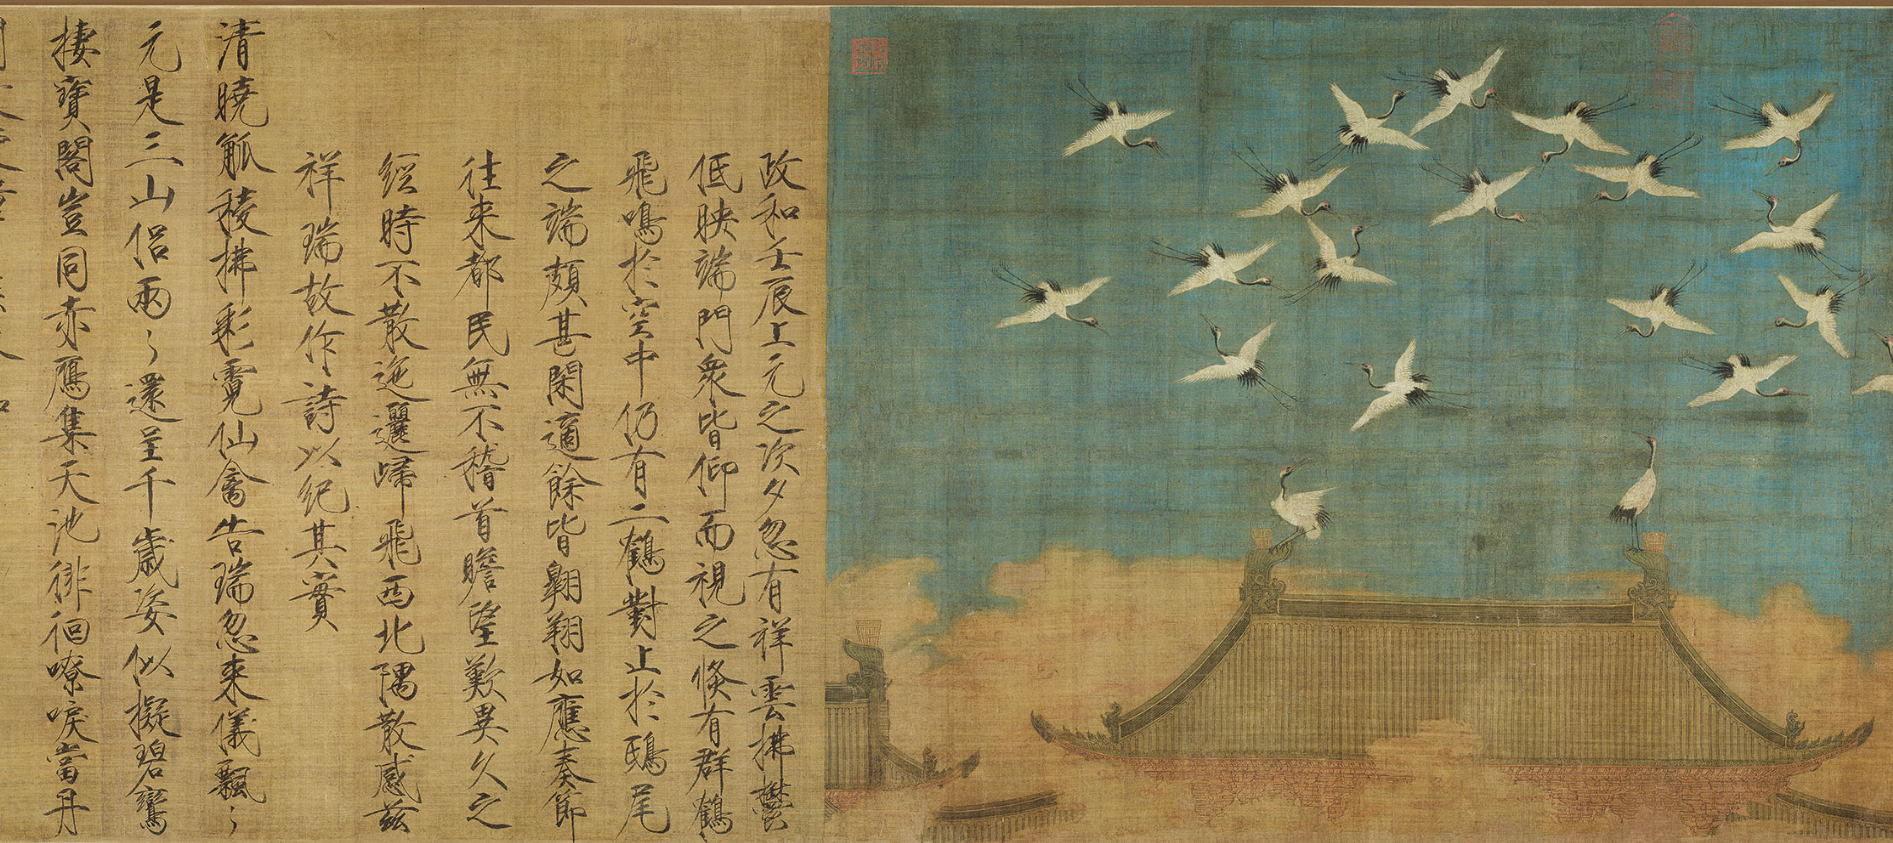 政和壬辰上元之次夕忽有祥雲拂鬱
低映端門衆皆仰而視之倏有群鶴
飛鳴於空中仍有二鶴對止於鴟尾
之端頗甚閑適餘皆翱翔如應奏節
往来都民無不稽首瞻望歎異久之
經時不散迤邐歸飛西北隅散感茲
祥瑞故作詩以紀其實
清曉觚稜拂彩霓仙禽告瑞忽来儀飄〻
元是三山侣兩〻還呈千歲姿似擬碧鸞
棲寶閣豈同赤鴈集天池徘徊嘹唳當丹